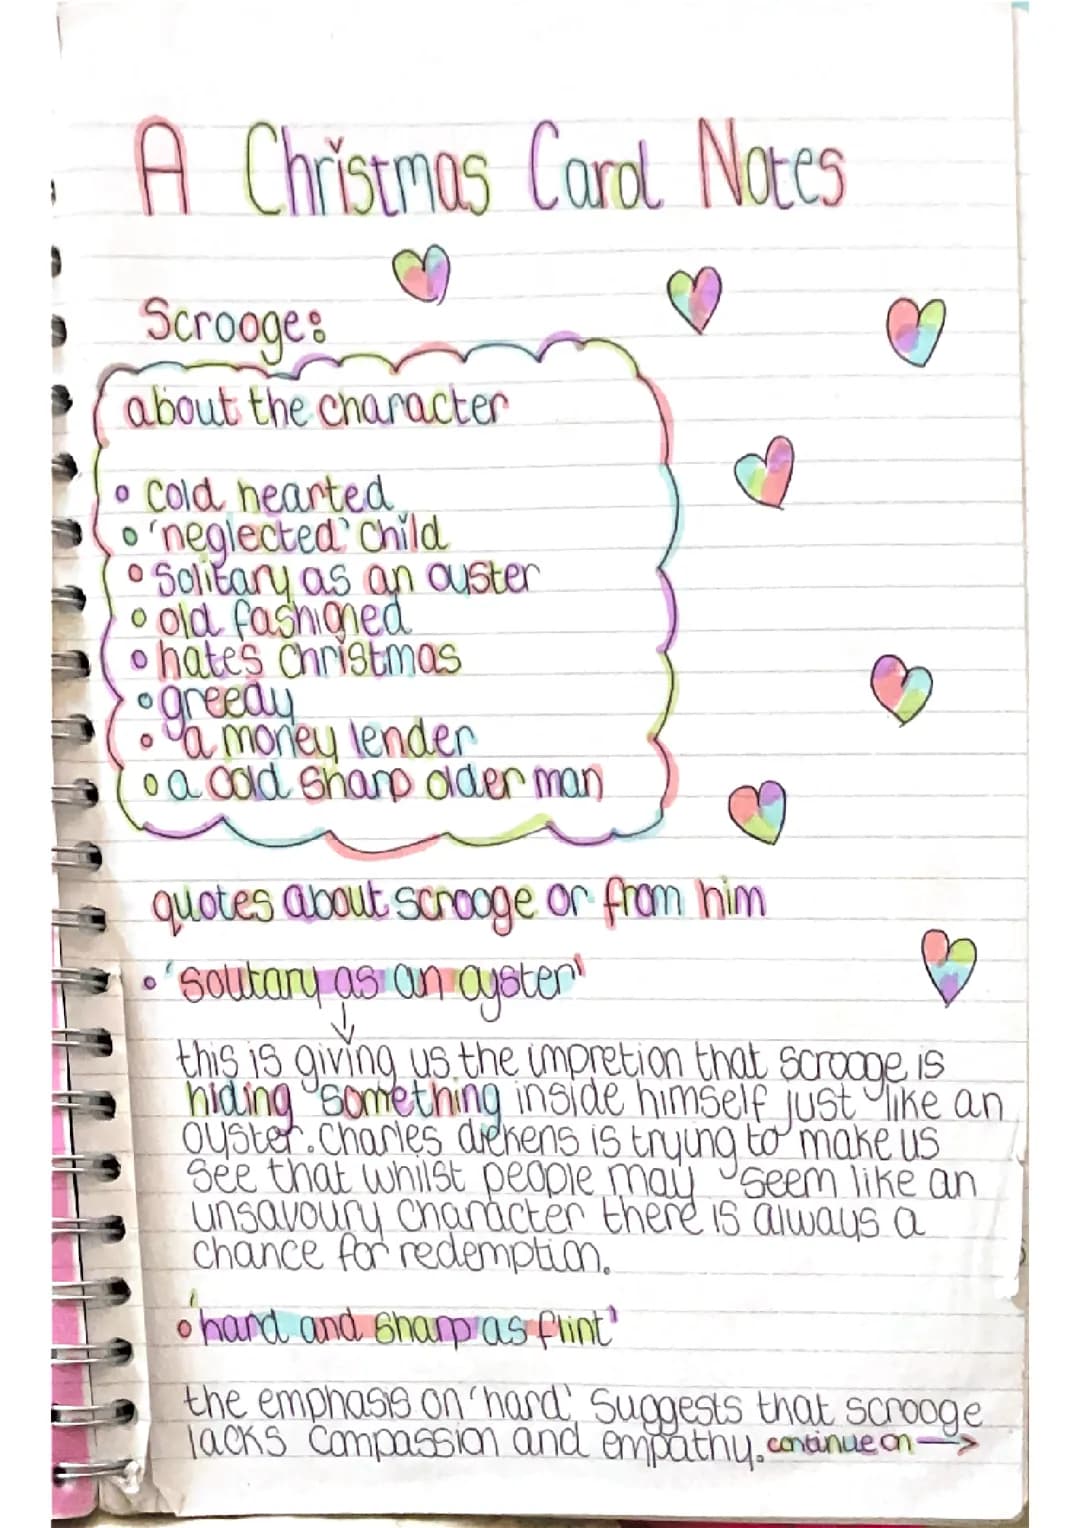 A Christmas Carol Notes
Scrooge:
about the character
• cold hearted
• 'neglected' child
• Solitary as an ouster
• old fashioned
• hates christmas
• greedy
• a money lender
• a cold sharp older man
quotes about scrooge or from him
• 'solitary as an oyster'
↓
this is giving us the impretion that scrooge is
hiding something inside himself just like an
oyster. Charles dickens is trying to make us
see that whilst people may seem like an
unsavoury character there is always a
chance for redemption.
• 'hard and sharp as flint'
the emphasis on 'hard' suggests that scrooge
lacks compassion and empathy. continue on →